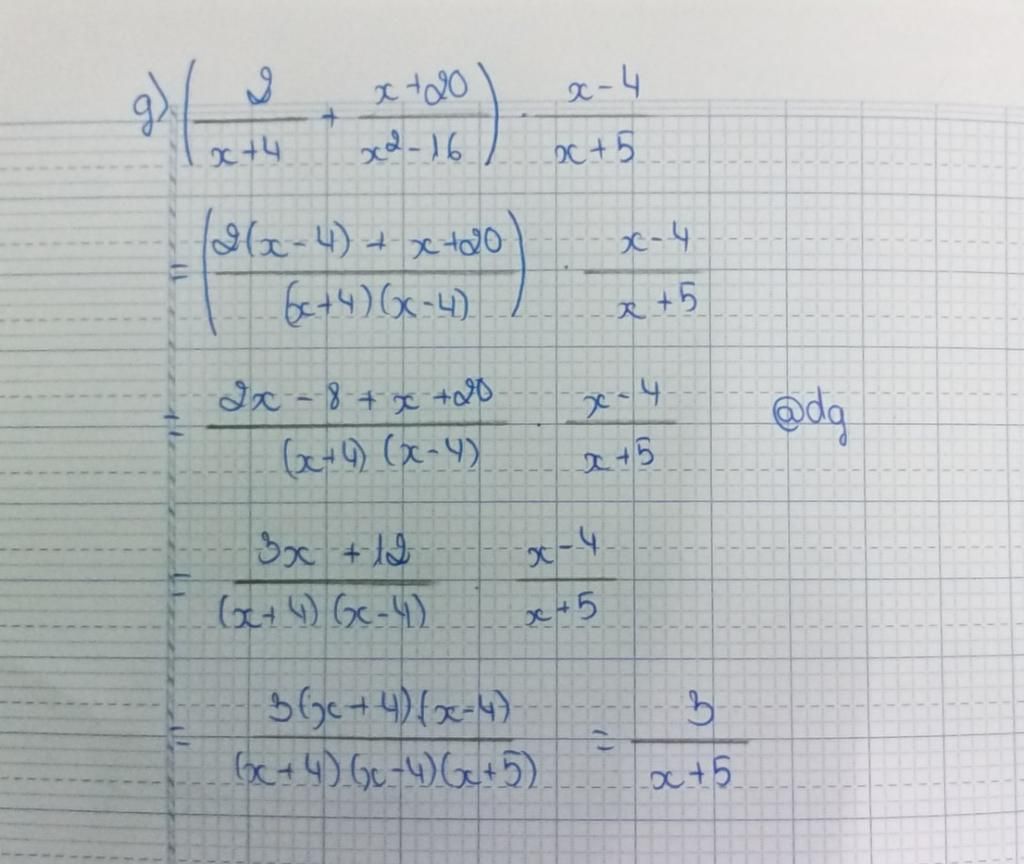 g) (2/(x+4) + (x+20)/(x²-16)) · (x-4)/(x+5)
= ((2(x-4) + x+20)/((x+4)(x-4))) · (x-4)/(x+5)
= (2x - 8 + x + 20)/((x+4)(x-4)) · (x-4)/(x+5) @dg
= (3x + 12)/((x+4)(x-4)) · (x-4)/(x+5)
= (3(x+4)(x-4))/((x+4)(x-4)(x+5)) = 3/(x+5)